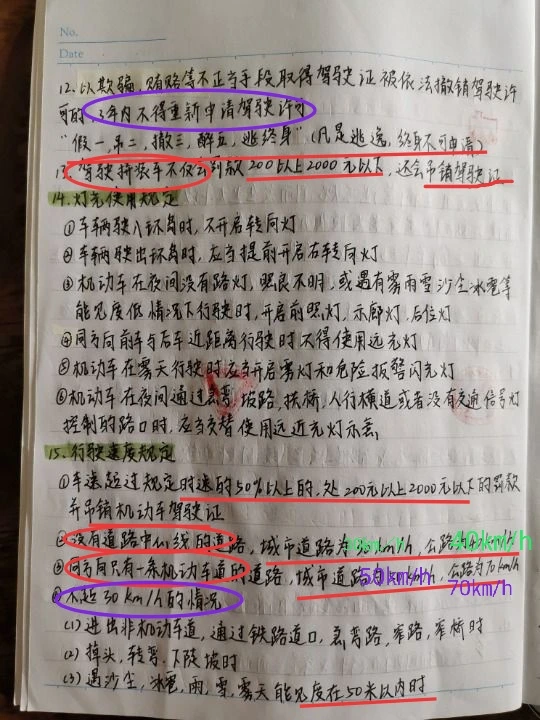 No.
Date
12. 以欺骗, 贿赂等不正当手段取得驾驶证被依法撤销驾驶许
可的, 3年内不得重新申请驾驶许可
“假一, 吊二, 撤三, 醉五, 逃终身” (凡是逃逸, 终身不可申请)
13. 驾驶拼装车不仅会罚款200以上2000元以下, 还会吊销驾驶证
14. 灯光使用规定
①车辆驶入环岛时, 不开启转向灯
②车辆驶出环岛时, 应当提前开启右转向灯
③机动车在夜间没有路灯, 照良不明, 或遇有雾雨雪沙尘冰雹等
能见度低情况下行驶时, 开启前照灯, 示廊灯, 后位灯
④同方向前车与后车近距离行驶时不得使用远光灯
⑤机动车在雾天行驶时应当开启雾灯和危险报警闪光灯
⑥机动车在夜间通过急弯, 坡路, 拱桥, 人行横道或者没有交通信号灯
控制的路口时, 应当交替使用远近光灯示意
15. 行驶速度规定
①车速超过规定时速的50%以上的, 处200元以上2000元以下的罚款
并吊销机动车驾驶证
②没有道路中心线的道路, 城市道路为30km/h, 公路为40km/h
③同方向只有一条机动车道的道路, 城市道路为50km/h, 公路为70km/h
70km/h
④不超30km/h的情况
(1) 进出非机动车道, 通过铁路道口, 急弯路, 窄路, 窄桥时
(2) 掉头, 转弯, 下陡坡时
(3) 遇沙尘, 冰雹, 雨, 雪, 雾天能见度在50米以内时